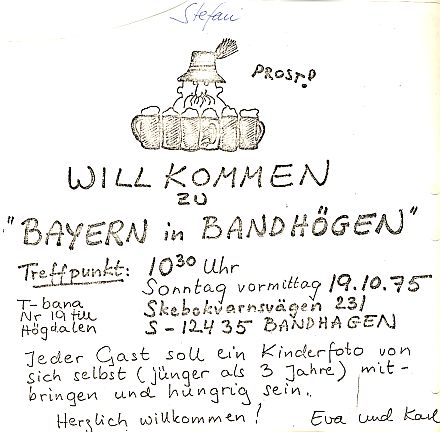 Stefan
PROST!
WILLKOMMEN
ZU
"BAYERN in BANDHÖGEN"
Treffpunkt: 10³⁰ Uhr
Sonntag vormittag 19.10.75
T-bana
Nr 19 till
Högdalen
Skebokvarnsvägen 231
S-124 35 BANDHAGEN
Jeder Gast soll ein Kinderfoto von
sich selbst (jünger als 3 Jahre) mit-
bringen und hungrig sein.
Herzlich willkommen!
Eva und Karl